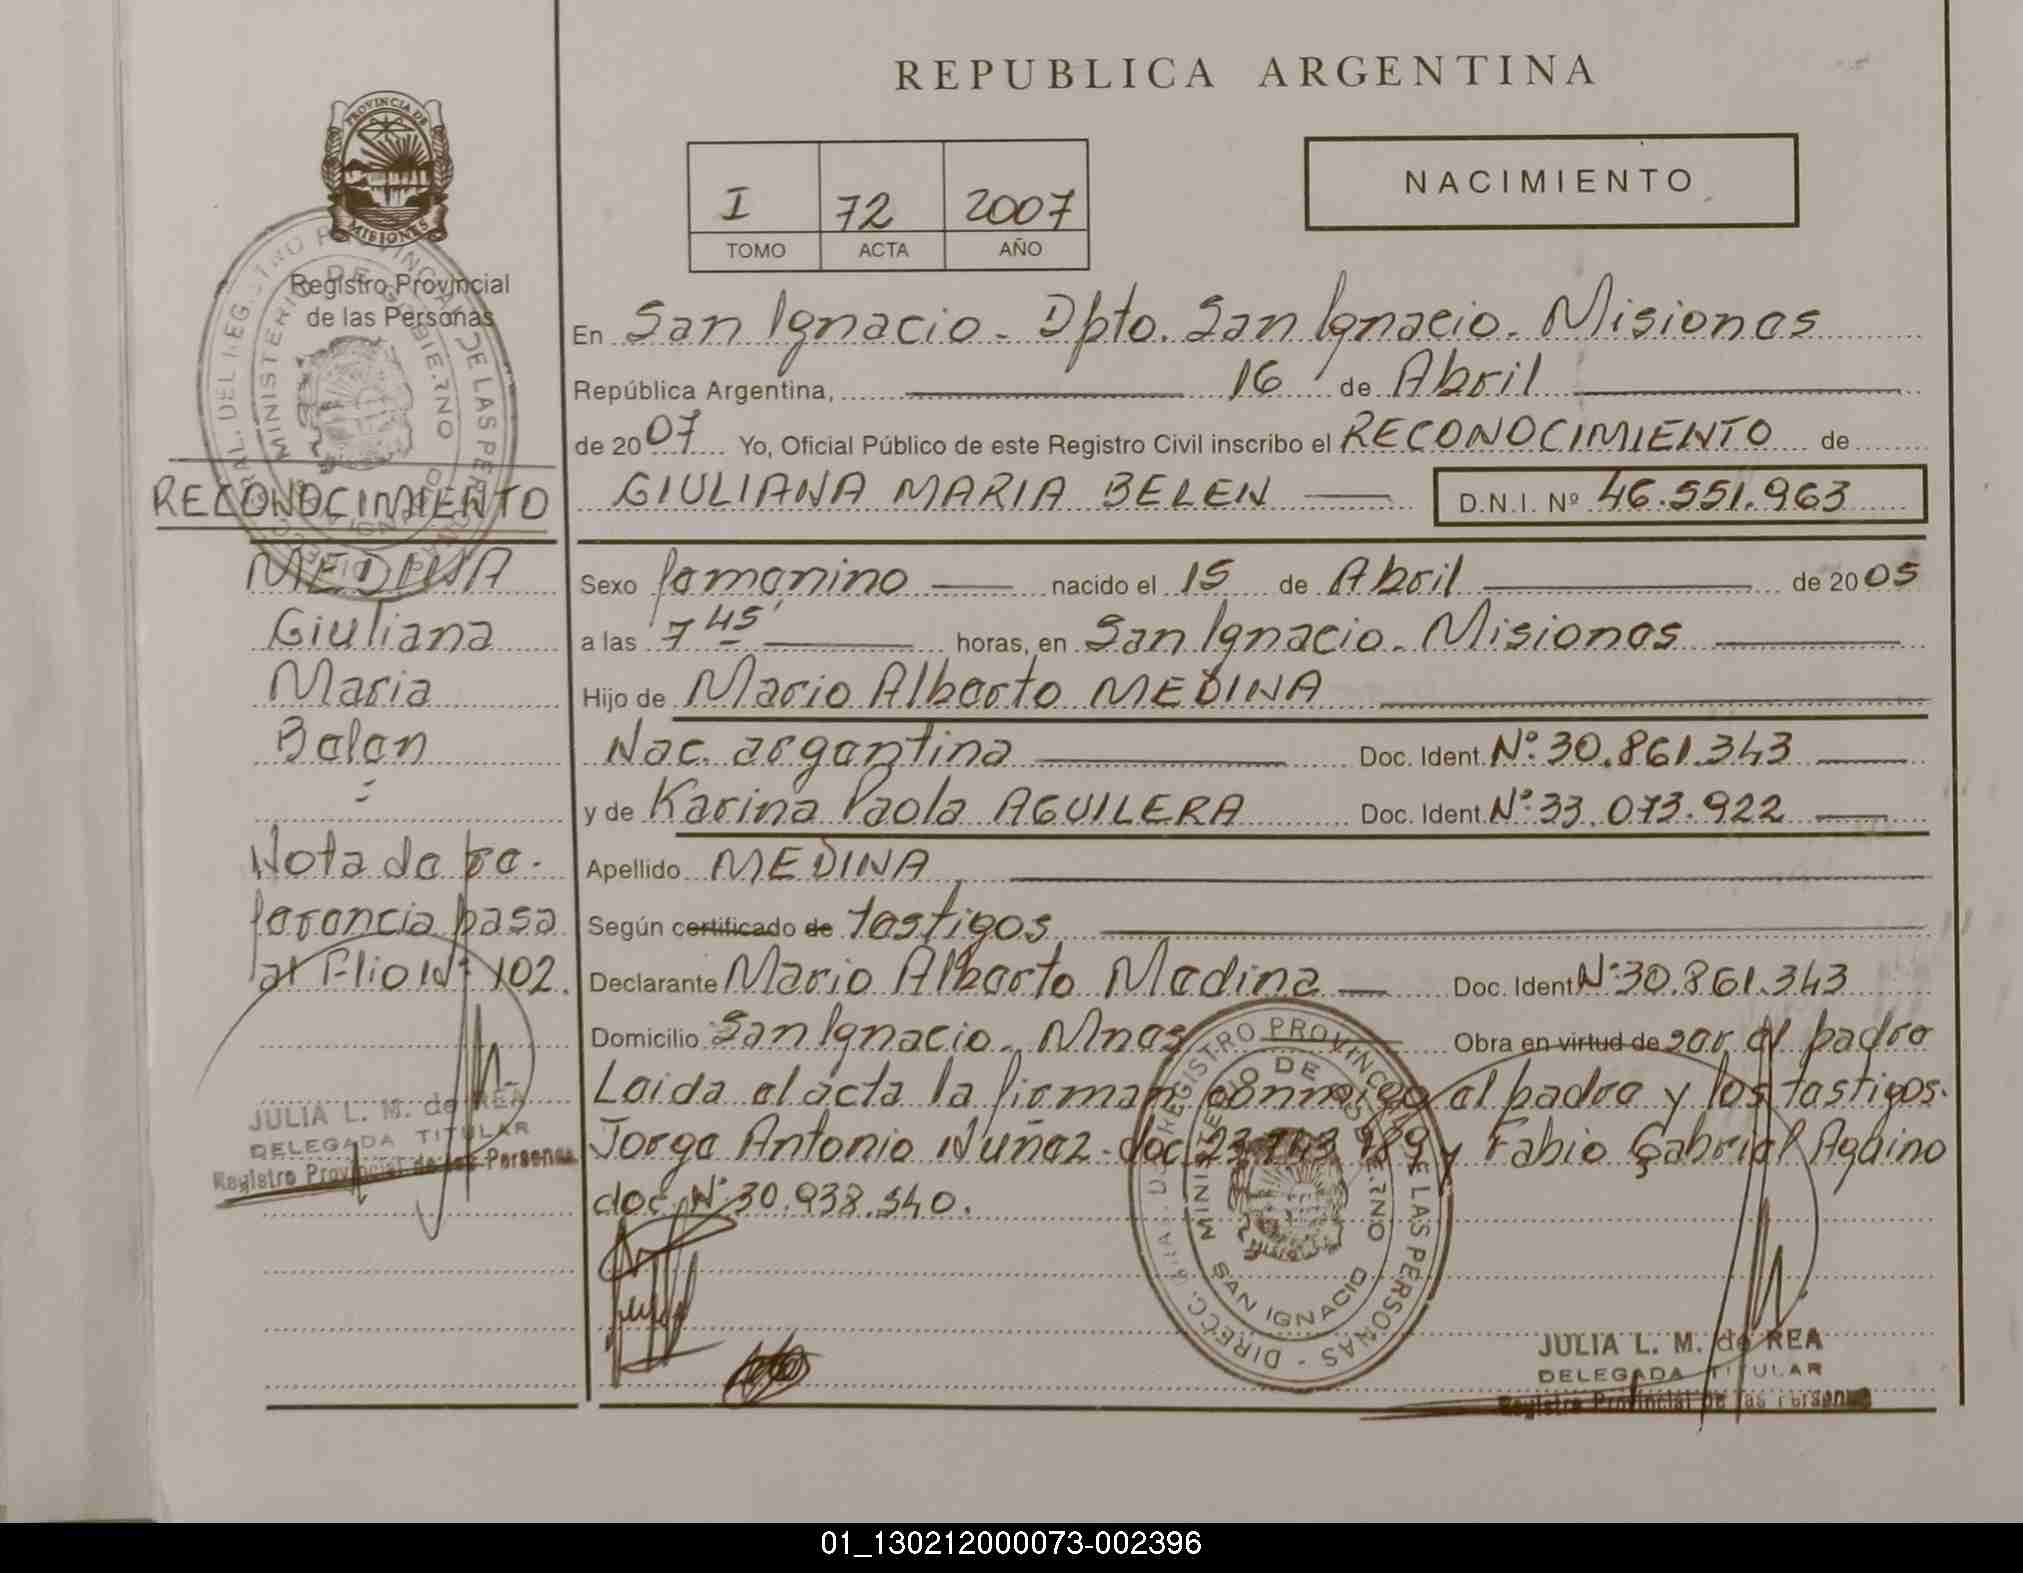 REPUBLICA ARGENTINA
PROVINCIA DE MISIONES
Registro Provincial
de las Personas
I 72 2007
TOMO ACTA AÑO
NACIMIENTO
En San Ignacio - Dpto. San Ignacio. Misiones
República Argentina, 16 de Abril
de 2007 Yo, Oficial Público de este Registro Civil inscribo el RECONOCIMIENTO de
GIULIANA MARIA BELEN D.N.I. Nº 46.551.963
Sexo femenino nacido el 15 de Abril de 2005
a las 7 45' horas, en San Ignacio. Misiones
Hijo de Mario Alberto MEDINA
Nac. argentina Doc. Ident. Nº 30.861.343
y de Karina Paola AGUILERA Doc. Ident. Nº 33.073.922
Apellido MEDINA
Según certificado de testigos
Declarante Mario Alberto Medina Doc. Ident Nº 30.861.343
Domicilio San Ignacio. Mnes Obra en virtud de ser el padre
Leida el acta la firman conmigo el padre y los testigos.
Jorge Antonio Nuñez - doc y Fabio Gabriel Aquino
doc. Nº 30.938.540.
RECONOCIMIENTO
MEDINA
Giuliana
Maria
Belen
Nota de re-
ferencia pasa
al Flio Nº 102.
JULIA L. M. de REA
DELEGADA TITULAR
Registro Provincial de las Personas
DIRECC. GRAL. DEL REGISTRO PROVINCIAL DE LAS PERSONAS
MINISTERIO DE GOBIERNO
SAN IGNACIO
JULIA L. M. de REA
DELEGADA TITULAR
Registro Provincial de las Personas
01_130212000073-002396